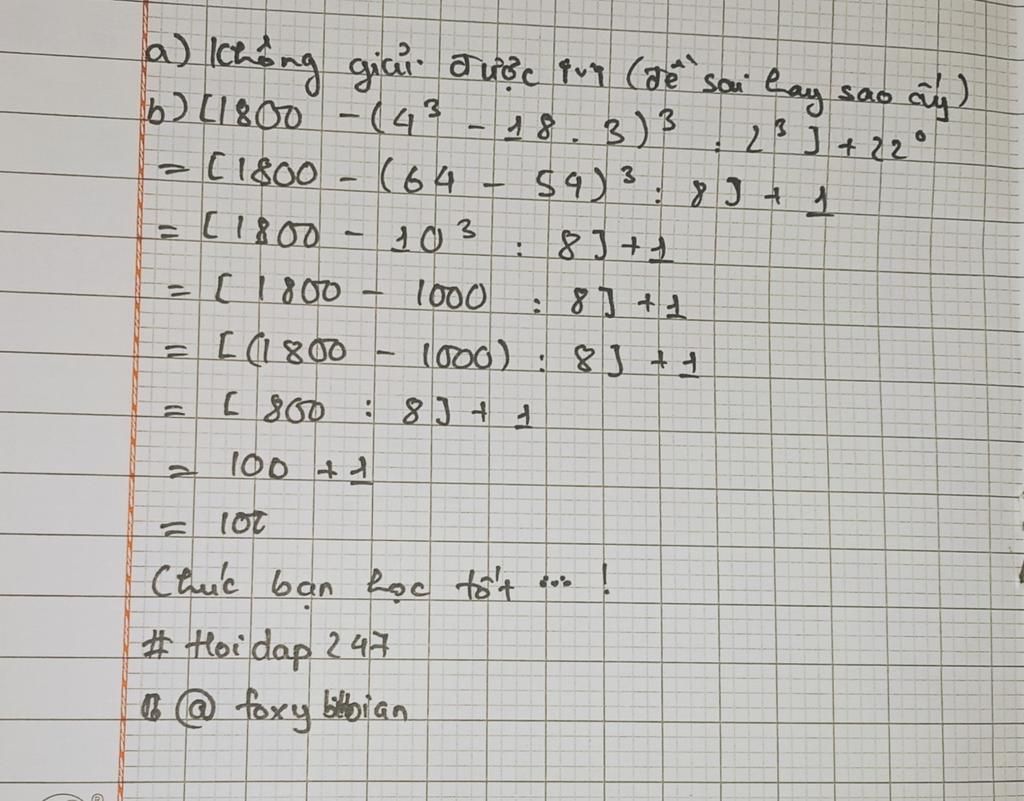 a) Không giải được (đề sai hay sao ấy)
b) [1800 - (4³ - 18 . 3)³ : 2³] + 22⁰
= [1800 - (64 - 54)³ : 8] + 1
= [1800 - 10³ : 8] + 1
= [1800 - 1000 : 8] + 1
= [(1800 - 1000) : 8] + 1
= [800 : 8] + 1
= 100 + 1
= 101
Chúc bạn học tốt ... !
# Hoidap 247
@ foxy